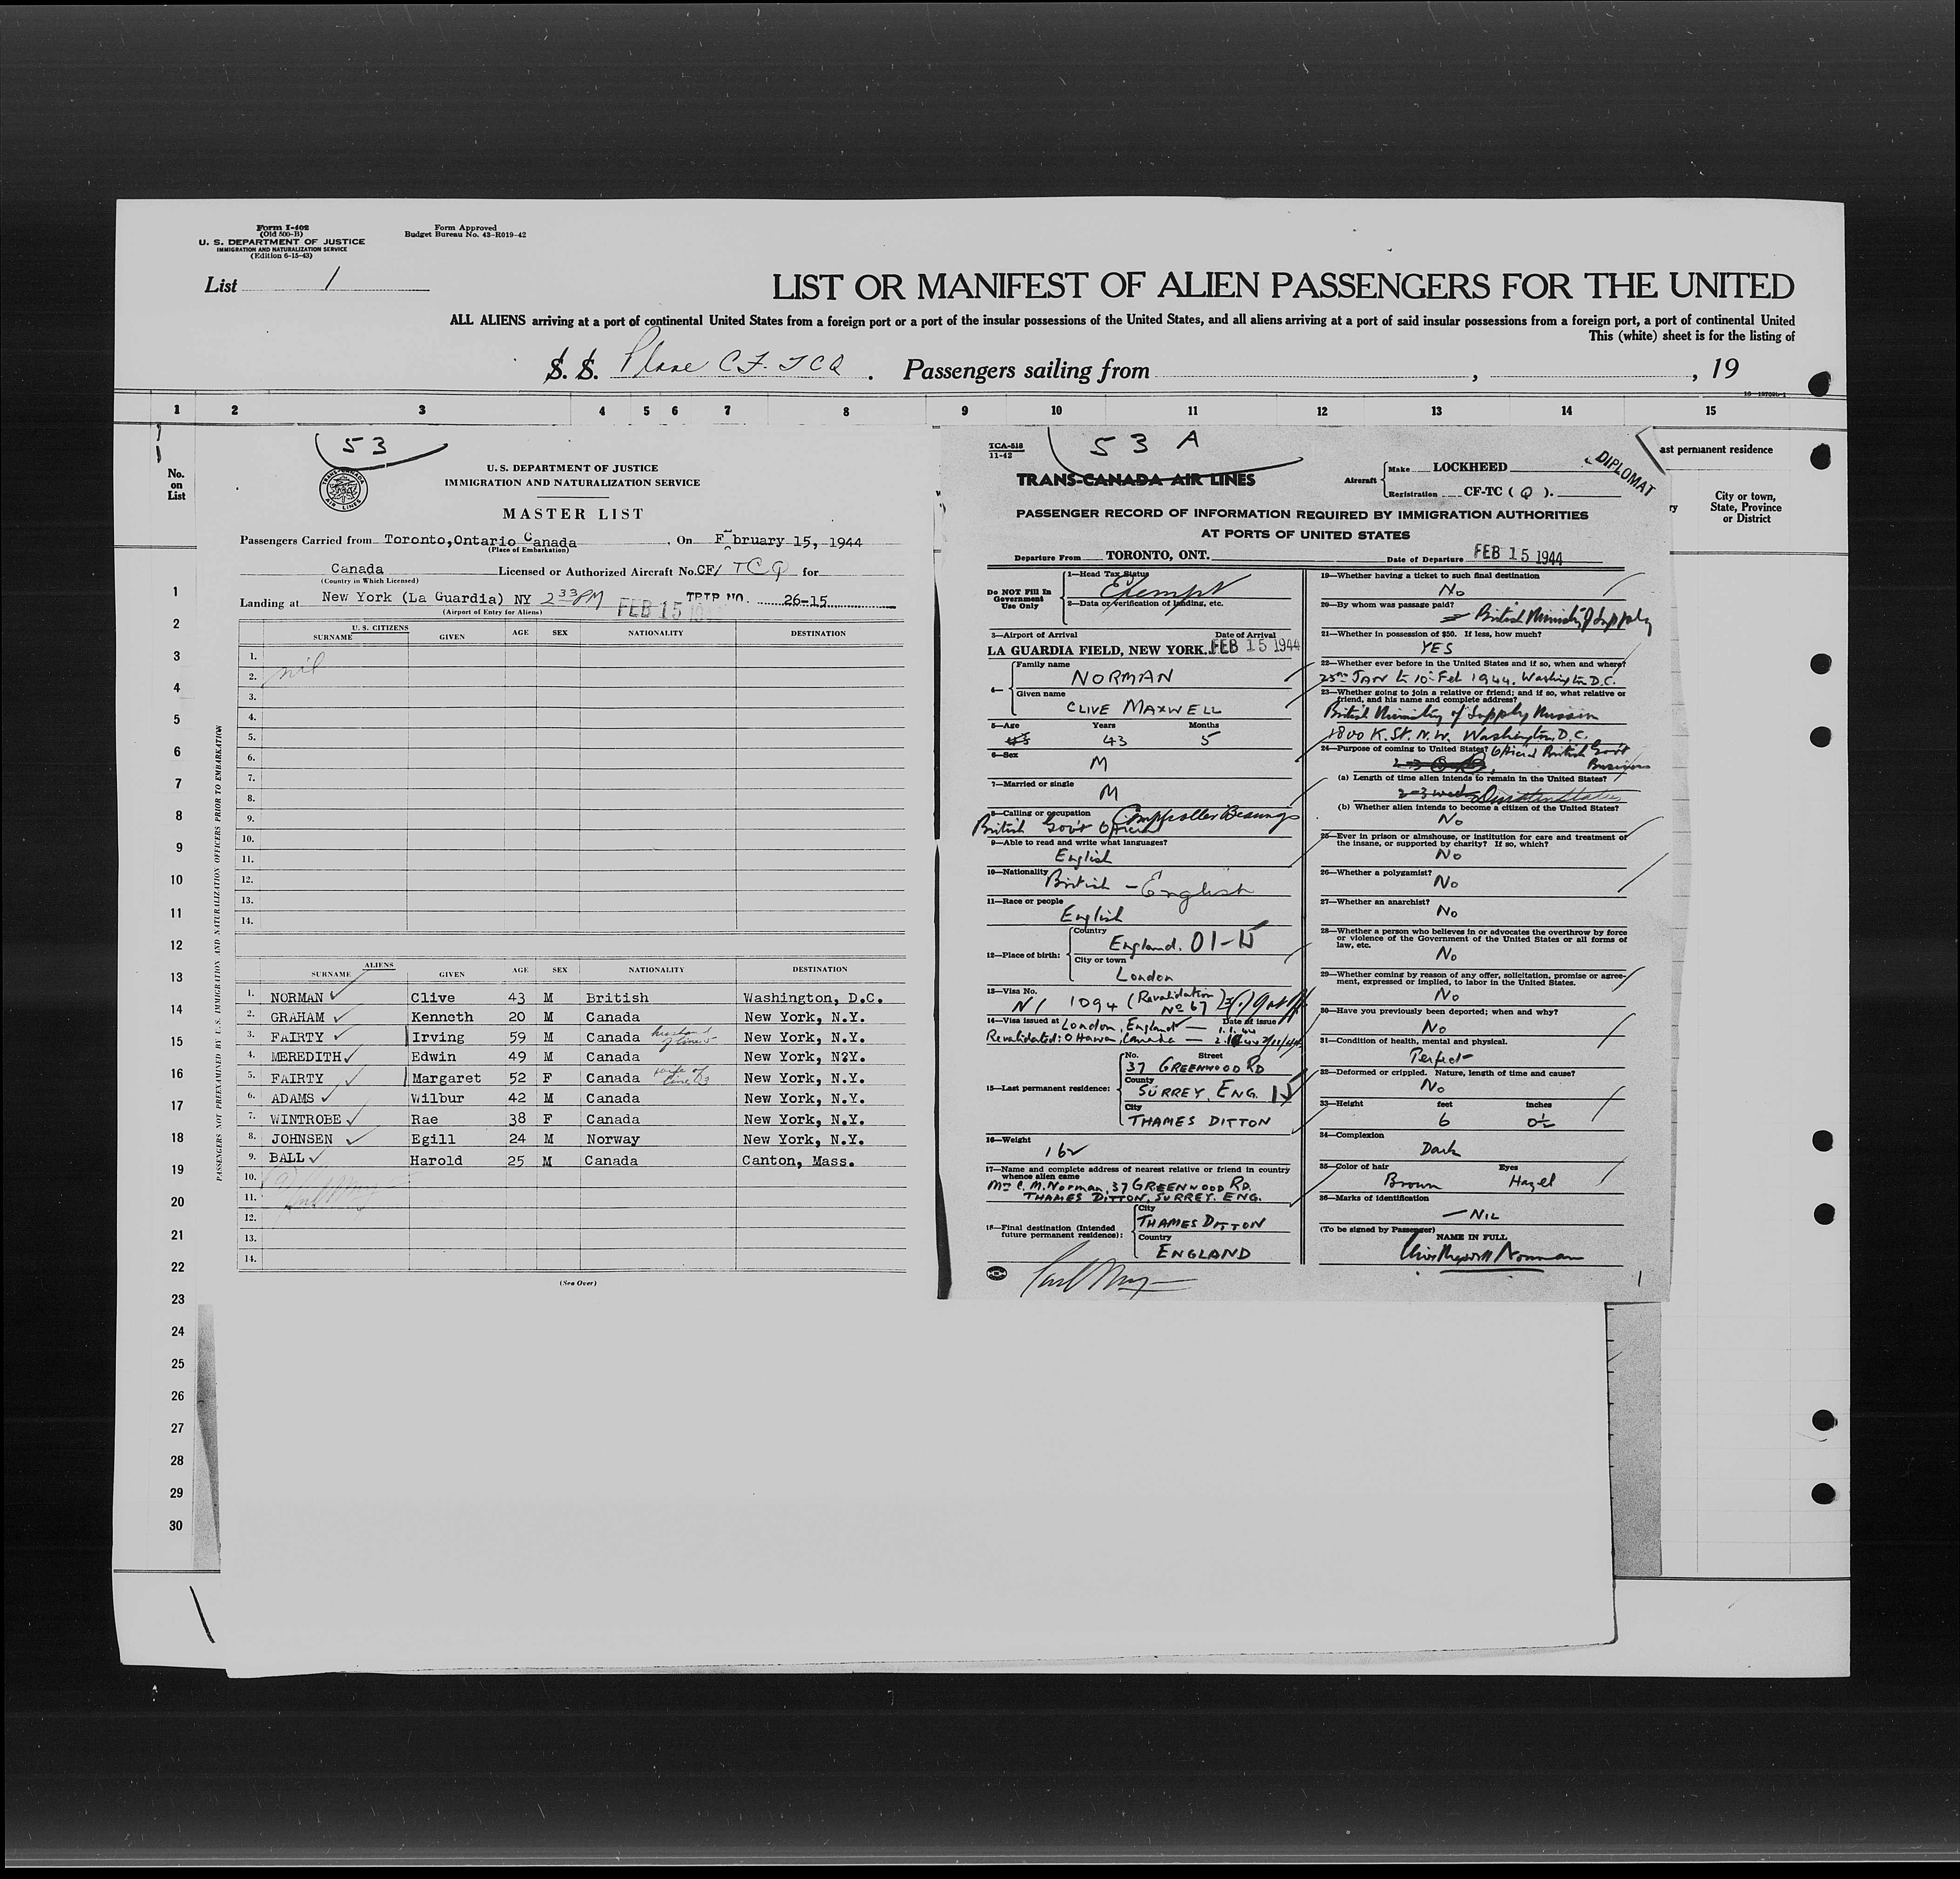 Form I-402
(Old 500-B)
U. S. DEPARTMENT OF JUSTICE
IMMIGRATION AND NATURALIZATION SERVICE
(Edition 6-15-43)
Form Approved
Budget Bureau No. 43-R019-42
List 1
LIST OR MANIFEST OF ALIEN PASSENGERS FOR THE UNITED
ALL ALIENS arriving at a port of continental United States from a foreign port or a port of the insular possessions of the United States, and all aliens arriving at a port of said insular possessions from a foreign port, a port of continental United
This (white) sheet is for the listing of
S. S. Plane CF. TCQ. Passengers sailing from , , 19
1 2 3 4 5 6 7 8 9 10 11 12 13 14 15
No.
on
List
1
2
3
4
5
6
7
8
9
10
11
12
13
14
15
16
17
18
19
20
21
22
23
24
25
26
27
28
29
30
53
U. S. DEPARTMENT OF JUSTICE
IMMIGRATION AND NATURALIZATION SERVICE
MASTER LIST
Passengers Carried from Toronto,Ontario Canada, On February 15, 1944
(Place of Embarkation)
Canada Licensed or Authorized Aircraft No. CF/ TCQ for
(Country in Which Licensed)
Landing at New York (La Guardia) NY 2 33 PM FEB 15 TRIP NO. 26-15
(Airport of Entry for Aliens)
PASSENGERS NOT PREEXAMINED BY U.S. IMMIGRATION AND NATURALIZATION OFFICERS PRIOR TO EMBARKATION
U. S. CITIZENS
SURNAME GIVEN AGE SEX NATIONALITY DESTINATION
1.
2. nil
3.
4.
5.
6.
7.
8.
9.
10.
11.
12.
13.
14.
ALIENS
SURNAME GIVEN AGE SEX NATIONALITY DESTINATION
1. NORMAN Clive 43 M British Washington, D.C.
2. GRAHAM Kenneth 20 M Canada New York, N.Y.
3. FAIRTY Irving 59 M Canada husband of line 5 New York, N.Y.
4. MEREDITH Edwin 49 M Canada New York, N?Y.
5. FAIRTY Margaret 52 F Canada wife of line 3 New York, N.Y.
6. ADAMS Wilbur 42 M Canada New York, N.Y.
7. WINTROBE Rae 38 F Canada New York, N.Y.
8. JOHNSEN Egill 24 M Norway New York, N.Y.
9. BALL Harold 25 M Canada Canton, Mass.
10.
11.
12.
13.
14.
(See Over)
TCA-518
11-42
53 A
TRANS-CANADA AIR LINES
Aircraft Make LOCKHEED
Registration CF-TC ( Q ).
DIPLOMAT
PASSENGER RECORD OF INFORMATION REQUIRED BY IMMIGRATION AUTHORITIES
AT PORTS OF UNITED STATES
Departure From TORONTO, ONT. Date of Departure FEB 15 1944
Do NOT Fill In
Government
Use Only
1—Head Tax Status
Exempt
2—Data or verification of landing, etc.
3—Airport of Arrival Date of Arrival
LA GUARDIA FIELD, NEW YORK. FEB 15 1944
4— Family name
NORMAN
Given name
CLIVE MAXWELL
5—Age Years Months
43 5
6—Sex
M
7—Married or single
M
8—Calling or occupation Comptroller Bearings
British Gov't Official
9—Able to read and write what languages?
English
10—Nationality British - English
11—Race or people
English
12—Place of birth: Country
England. 01-15
City or town
London
13—Visa No.
NI 1094 (Revalidation No 67)
14—Visa issued at London, England — Date of issue 1.1.44
Revalidated: Ottawa, Canada —
15—Last permanent residence:
No. Street
37 GREENWOOD RD
County
SURREY, ENG. 15
City
THAMES DITTON
16—Weight
162
17—Name and complete address of nearest relative or friend in country
whence alien came
Mrs C. M. Norman, 37 GREENWOOD RD.
THAMES DITTON, SURREY. ENG.
18—Final destination (Intended
future permanent residence):
City
THAMES DITTON
Country
ENGLAND
19—Whether having a ticket to such final destination
No
20—By whom was passage paid?
British Ministry of Supply
21—Whether in possession of $50. If less, how much?
YES
22—Whether ever before in the United States and if so, when and where?
JAN to 10th Feb 1944. Washington D.C.
23—Whether going to join a relative or friend; and if so, what relative or
friend, and his name and complete address?
British Ministry of Supply Mission
1800 K. St. N.W. Washington, D.C.
24—Purpose of coming to United States? Official British Gov't
Business
(a) Length of time alien intends to remain in the United States?
2-3 weeks
(b) Whether alien intends to become a citizen of the United States?
No
25—Ever in prison or almshouse, or institution for care and treatment of
the insane, or supported by charity? If so, which?
No
26—Whether a polygamist?
No
27—Whether an anarchist?
No
28—Whether a person who believes in or advocates the overthrow by force
or violence of the Government of the United States or all forms of
law, etc.
No
29—Whether coming by reason of any offer, solicitation, promise or agree-
ment, expressed or implied, to labor in the United States.
No
30—Have you previously been deported; when and why?
No
31—Condition of health, mental and physical.
Perfect
32—Deformed or crippled. Nature, length of time and cause?
No
33—Height feet inches
6 0½
34—Complexion
Dark
35—Color of hair Eyes
Brown Hazel
36—Marks of identification
— NIL
(To be signed by Passenger) NAME IN FULL
Clive Maxwell Norman
1
ast permanent residence
ry
City or town,
State, Province
or District